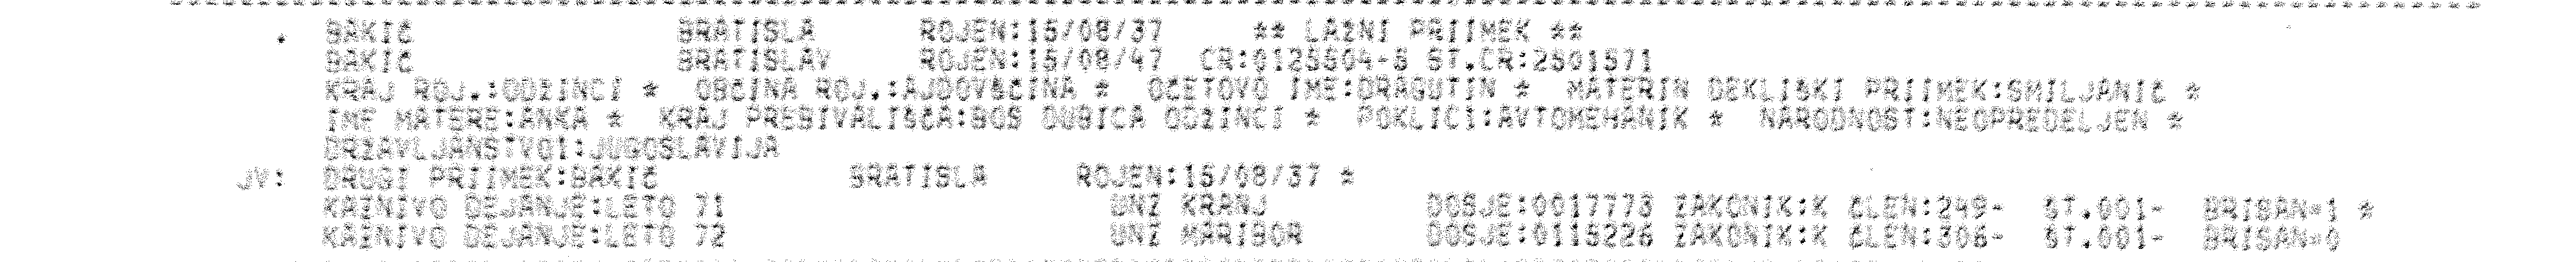 . BAKIČ BRATISLA ROJEN:15/08/37 ** LAŽNI PRIIMEK **
BAKIČ BRATISLAV ROJEN:15/08/47 CR:0125504-5 ŠT.CR:2501571
KRAJ ROJ.:ODŽINCI * OBČINA ROJ.:AJDOVŠČINA * OČETOVO IME:DRAGUTIN * MATERIN DEKLIŠKI PRIIMEK:SMILJANIČ *
IME MATERE:ANKA * KRAJ PREBIVALIŠČA:BOS DUBICA ODŽINCI * POKLIC1:AVTOMEHANIK * NARODNOST:NEOPREDELJEN *
DRŽAVLJANSTVO1:JUGOSLAVIJA
JV: DRUGI PRIIMEK:BAKIČ BRATISLA ROJEN:15/08/37 *
KAZNIVO DEJANJE:LETO 71 UNZ KRANJ DOSJE:0017773 ZAKONIK:K ČLEN:249- ŠT.001- BRISAN=1 *
KAZNIVO DEJANJE:LETO 72 UNZ MARIBOR DOSJE:0115226 ZAKONIK:K ČLEN:306- ŠT.001- BRISAN=0